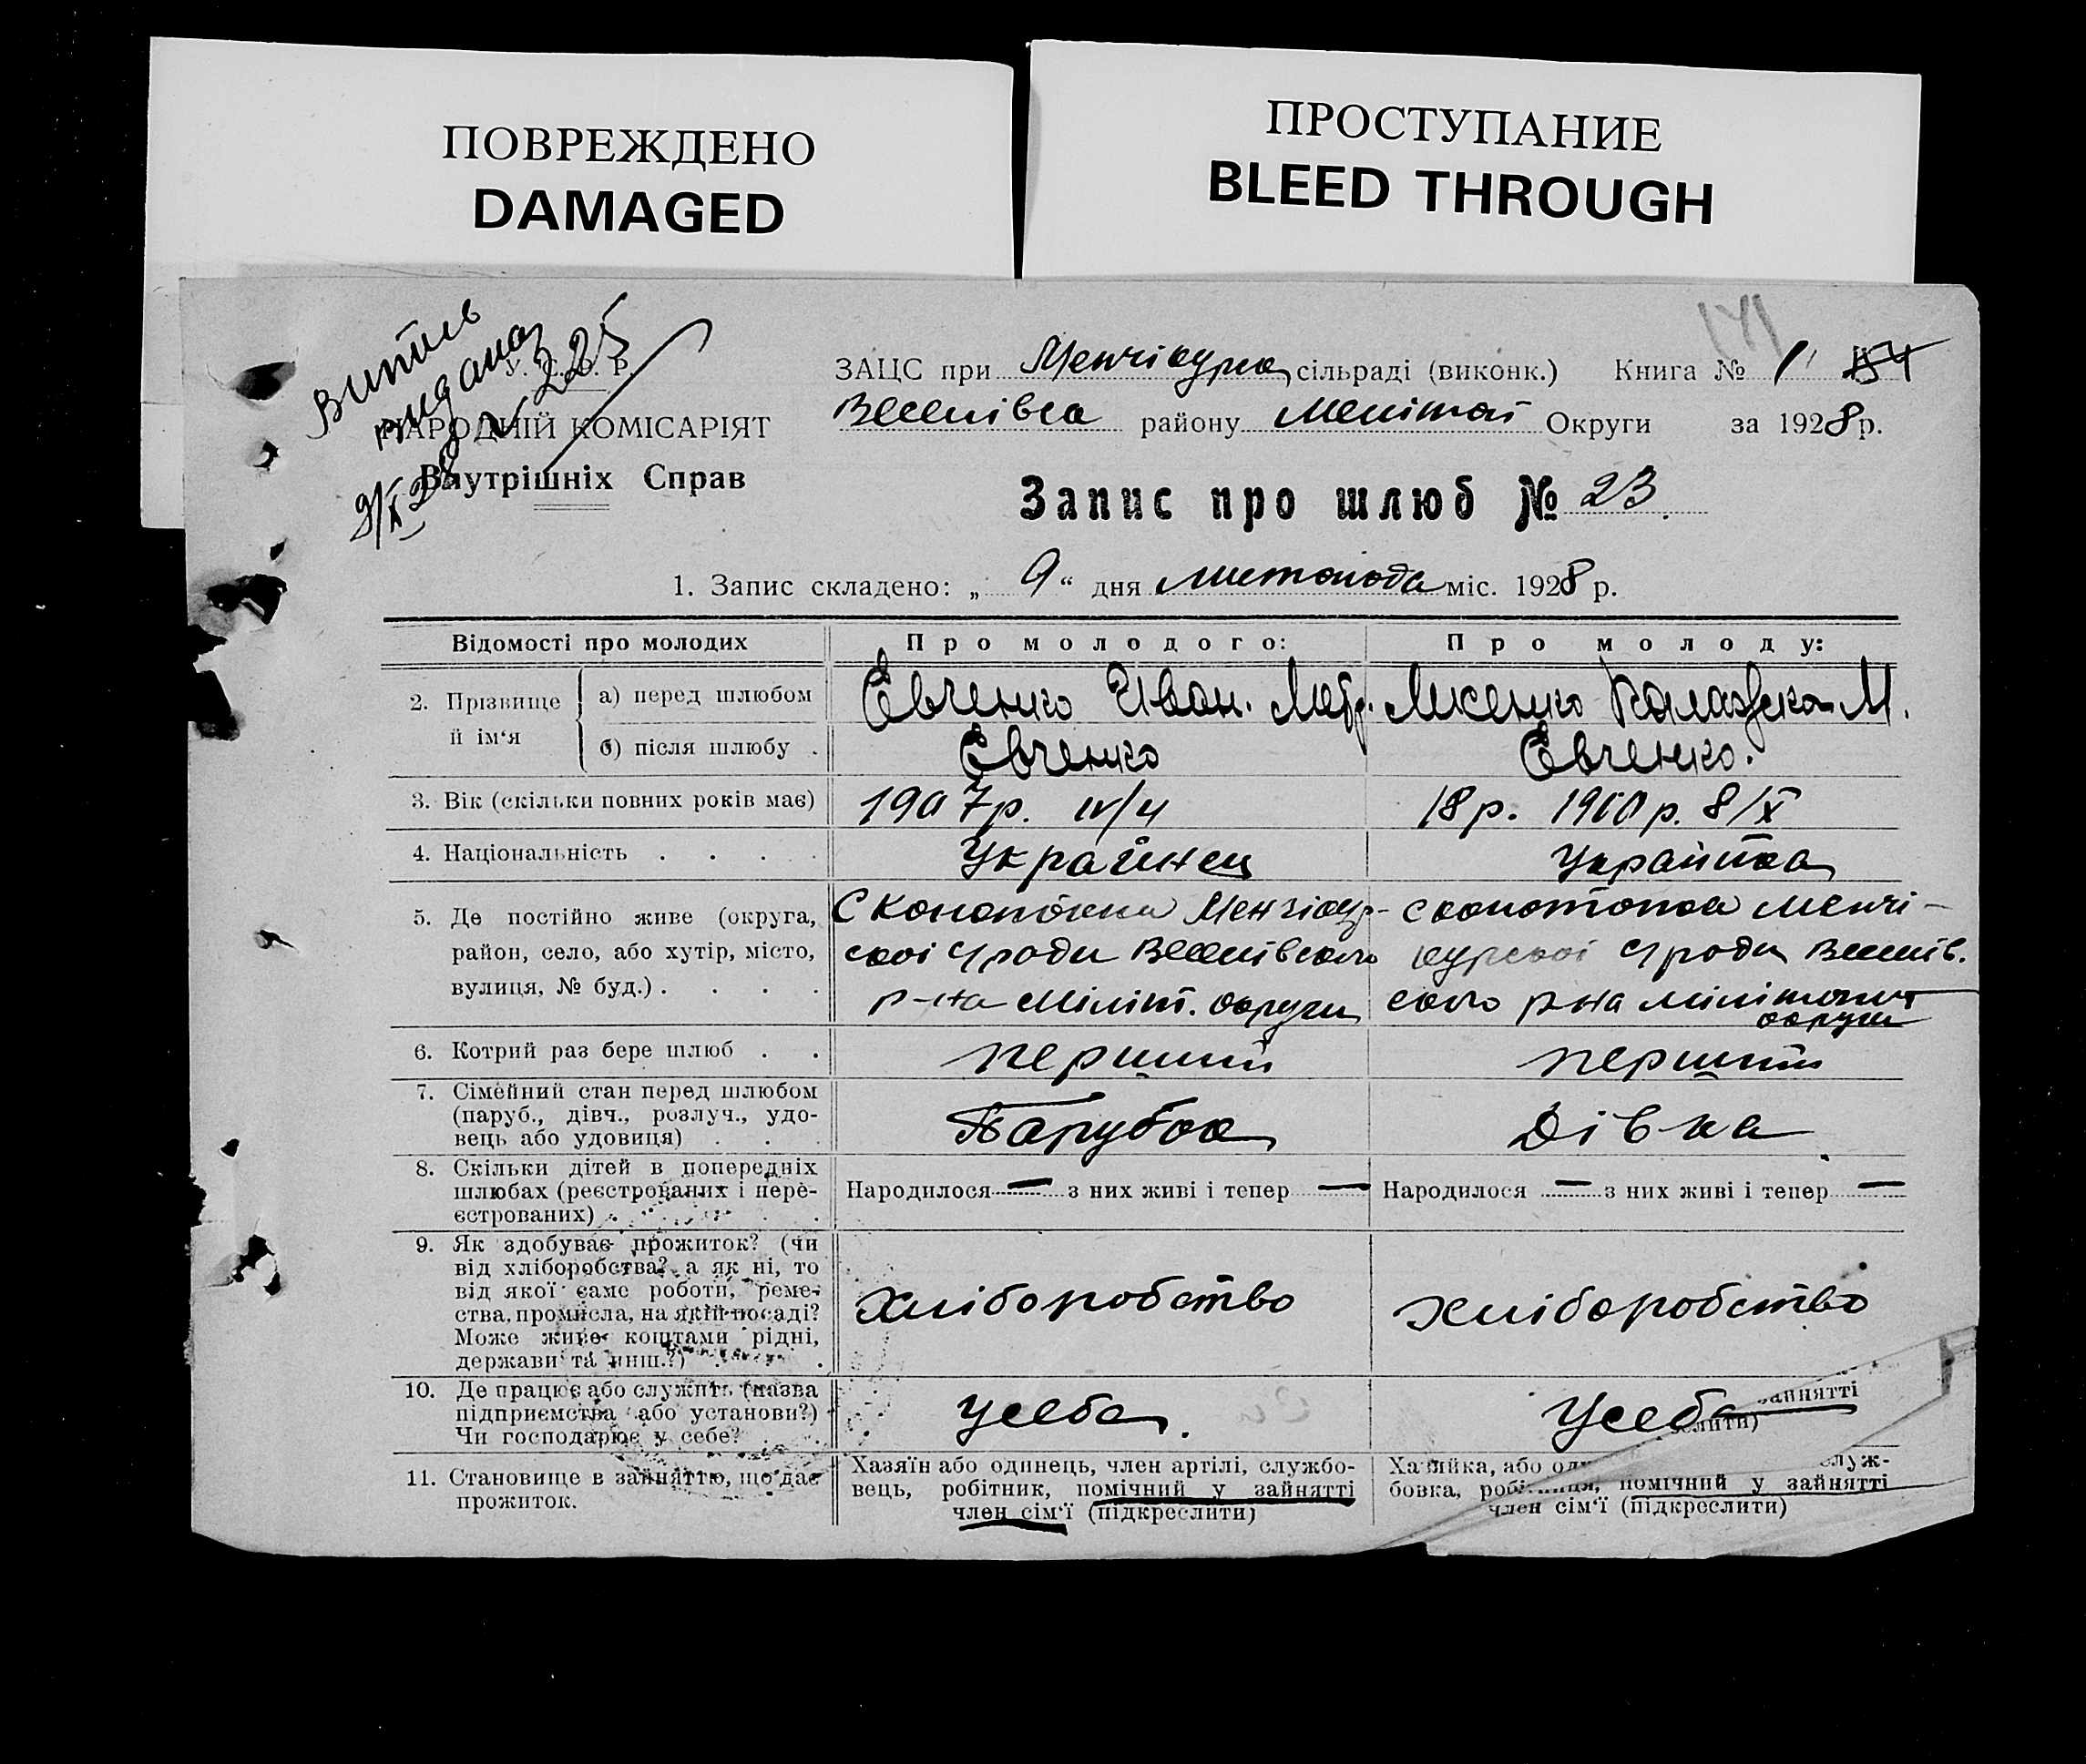 ПОВРЕЖДЕНО
DAMAGED
ПРОСТУПАНИЕ
BLEED THROUGH
141
Витяг
видана
№ 225
9/XI 28
У. С. Р. Р.
НАРОДНІЙ КОМІСАРІЯТ
Внутрішніх Справ
ЗАЦС при Менчікурк сільраді (виконк.) Книга № 1
Веселівск району Меліт Округи за 1928 р.
Запис про шлюб № 23.
1. Запис складено: „ 9 “ дня листопода міс. 1928 р.
Відомості про молодих
Про молодого:
Про молоду:
2. Прізвище й ім‘я
а) перед шлюбом
Євченко Иван.
Лисенко М.
б) після шлюбу .
Євченко
Євченко.
3. Вік (скільки повних років має)
1907р. IV/4
18р. 1910р. 8/X
4. Національність . . . .
Украйнец
Украйнка
5. Де постійно живе (округа,
район, село, або хутір, місто,
вулиця, № буд.) . . . .
С Менчікур-
скоі с/ради Веселівского
р-на Міліт. округи
с Менчі-
курскоі с/ради Веселів.
ского р-на
округи
6. Котрий раз бере шлюб . .
перший
перший
7. Сімейний стан перед шлюбом
(паруб., дівч., розлуч., удо-
вець або удовиця) . . .
Парубок
Дівка
8. Скільки дітей в попередніх
шлюбах (реєстрованих і нере-
єстрованих) . . . .
Народилося — з них живі і тепер —
Народилося — з них живі і тепер —
9. Як здобуває прожиток? (чи
від хліборобства? а як ні, то
від якої саме роботи, реме-
ства, промисла, на якій посаді?
Може живе коштами рідні,
держави та инш.?) . . .
Хліборобство
хліборобство
10. Де працює або служить (назва
підприємства або установи?)
Чи господарює у себе? . .
Усебе.
Усебе
зайнятті
11. Становище в зайняттю, що дає
прожиток.
Хазяїн або одинець, член артілі, службо-
вець, робітник, помічний у зайнятті
член сім‘ї (підкреслити)
Хазяйка, або служ-
бовка, робітниця, помічний у зайнятті
член сім‘ї (підкреслити)